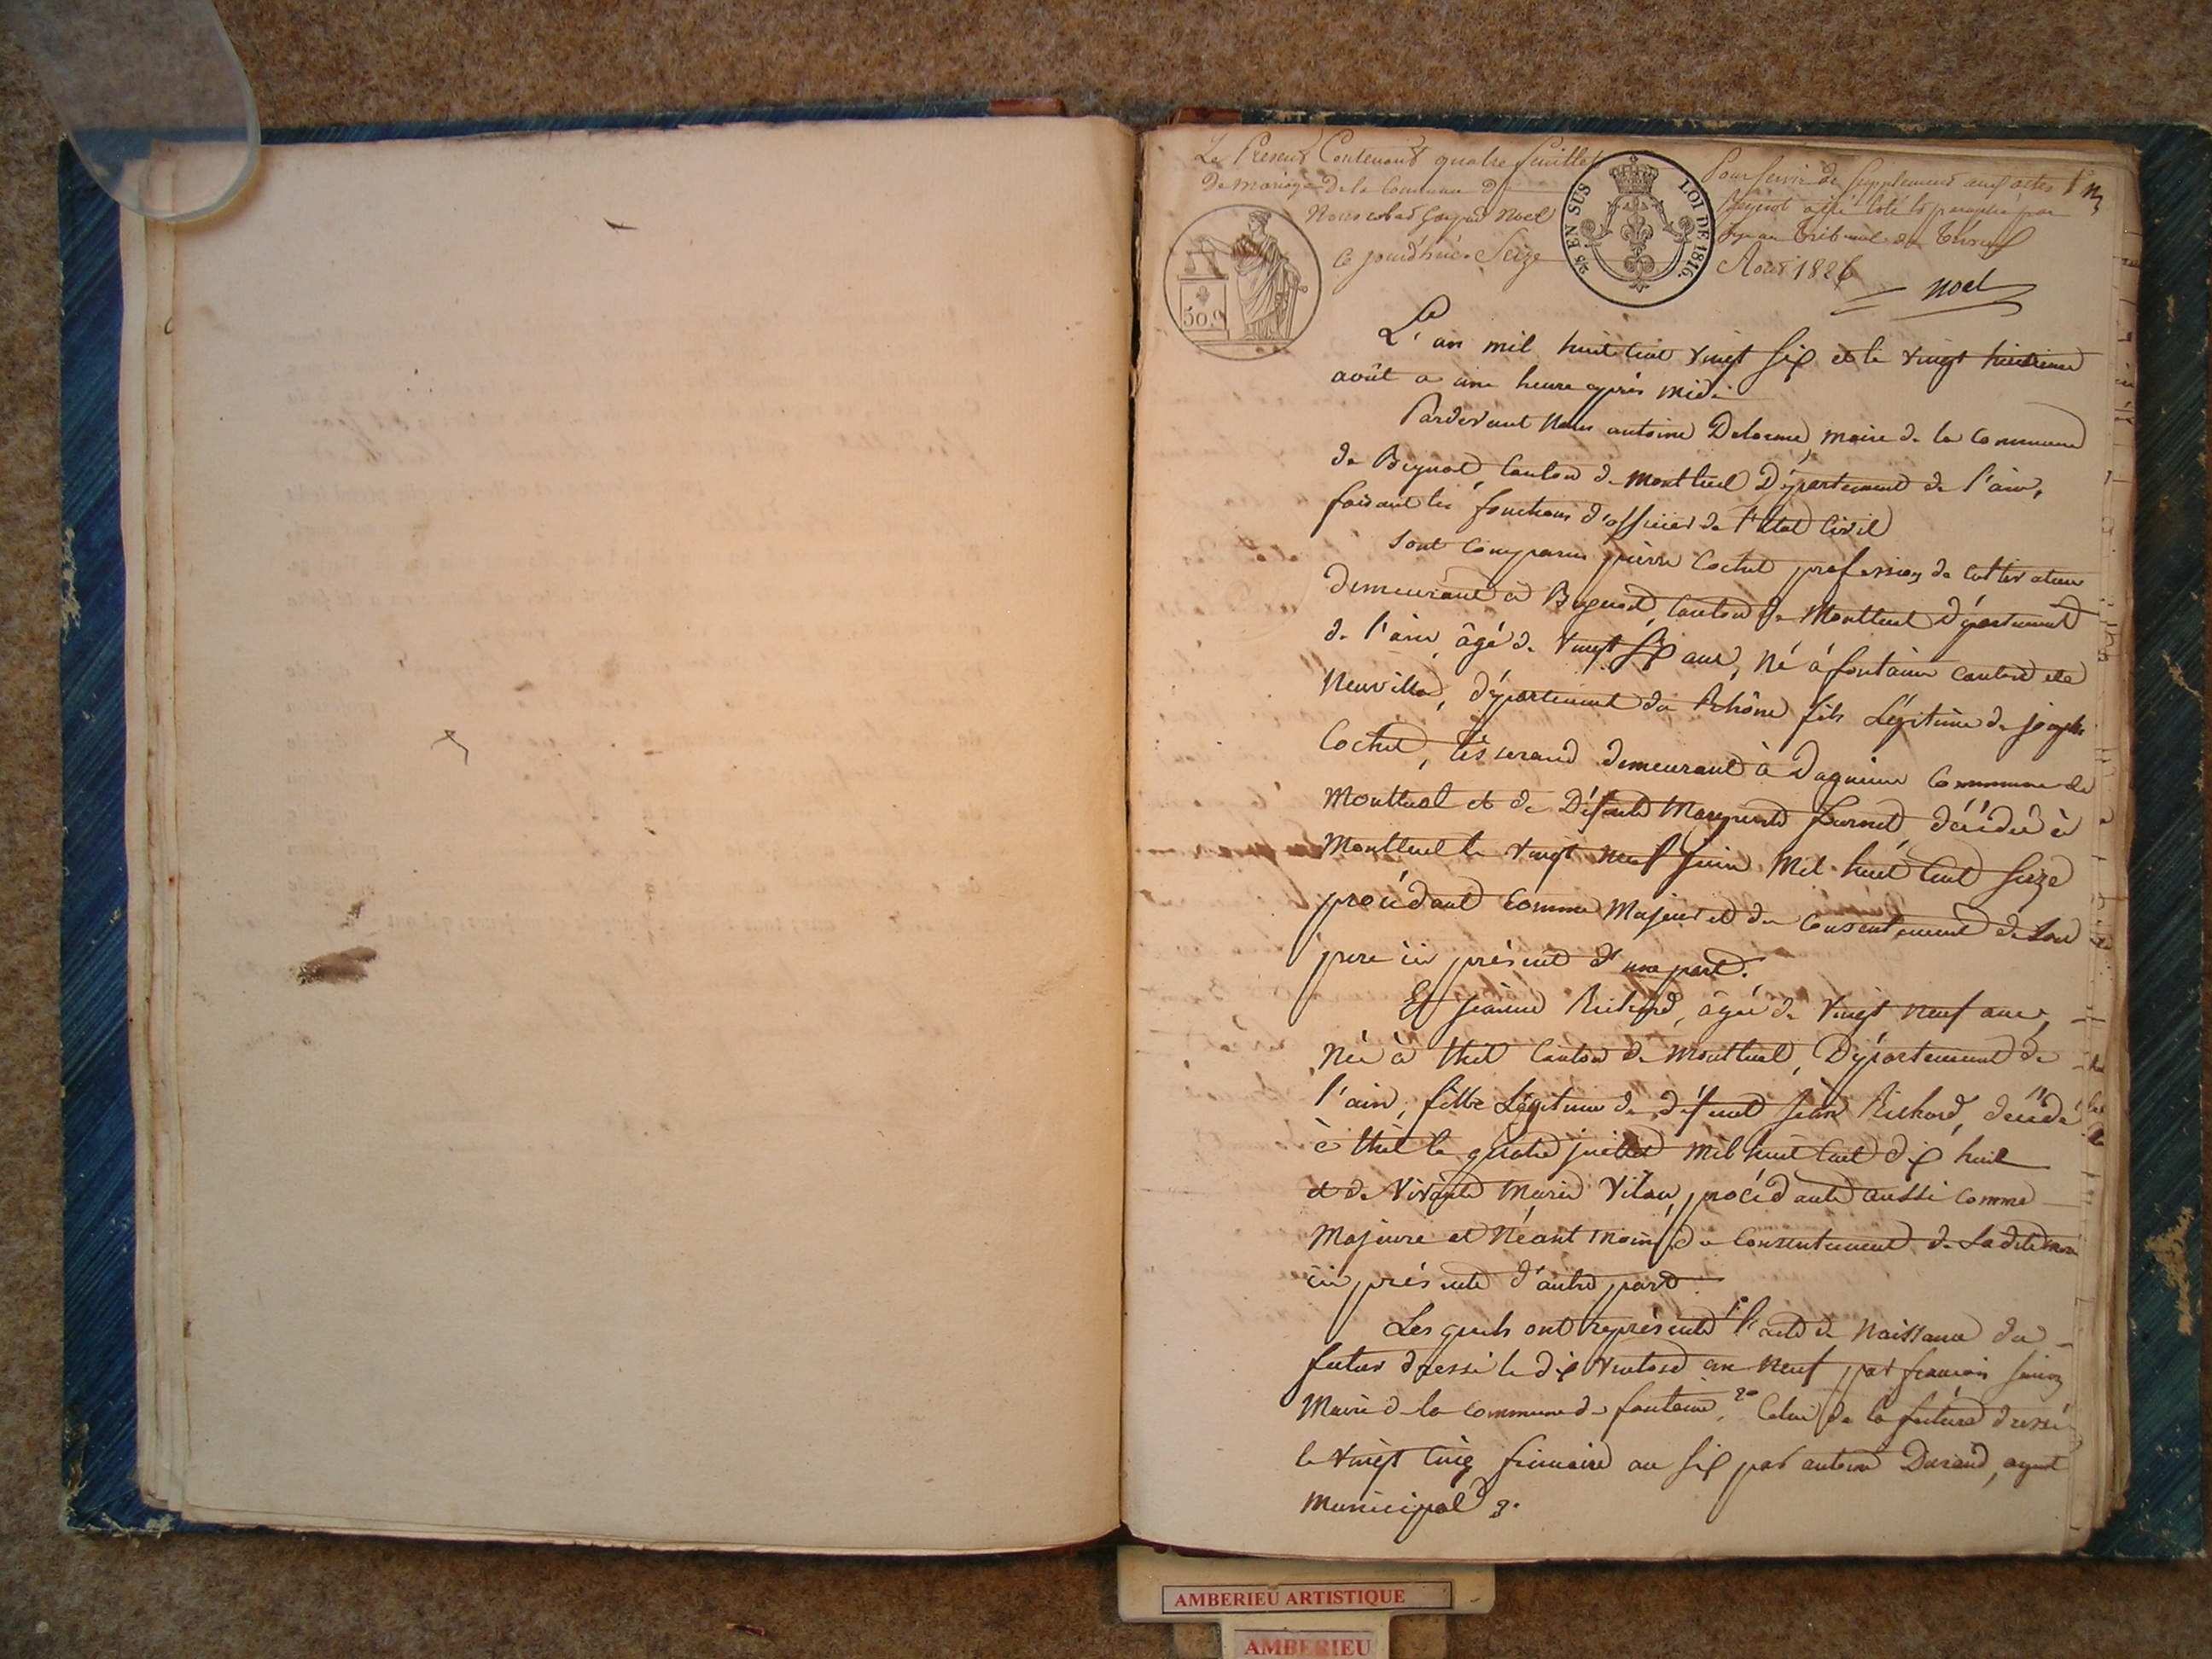 Le Present Contenant quatre feuillets Pour servir de Supplement aux actes 1er
De mariage de la Commune de Beynost a été coté et paraphé par
Nous Noel Juge au tribunal de Trévoux
Ce jourd'hui Seize Aout 1826
2/5 EN SUS LOI DE 1816.
50.c
Noel
L'an mil huit cent vingt six et le vingt huitieme
août a une heure après midi
Pardevant Nous antoine Delorme, maire de la Commune
de Beynost, Canton de Montluel Département de l'ain,
faisant les fonctions d'officier de l'Etat Civil
Sont Comparus pierre Cochet profession de Cultivateur
demeurant à Beynost, Canton de Montluel Département
de l'ain, âgé de vingt six ans, né à fontaine canton de
Neuville, département du Rhône fils Légitime de joseph
Cochet, tisserand demeurant à Dagnieu Commune de
Montluel et de Défunte Marguerite décédée à
Montluel le vingt neuf juin Mil huit Cent Seize
procédant Comme Majeur et du Consentement de Son
pere ici présent d'une part.
Et jeanne Richard, âgée de vingt neuf ans,
Née à thil Canton de Montluel, Département de
l'ain, fille Légitime de défunt jean Richard, décédé
à thil le quatre juillet mil huit Cent dix huit
et de Vivante Marie Vilan, procédante aussi Comme
Majeure et Néantmoins du Consentement de Sadite mere
ici présente d'autre part.
Les quels ont représenté 1º l'acte de Naissance du
futur dressé le dix Ventose an Neuf par françois
Maire de la Commune de fontaine, 2º Celui de la future dressé
le vingt Cinq frimaire an Six par antoine Durand, agent
Municipal 3º
AMBERIEU ARTISTIQUE
AMBERIEU